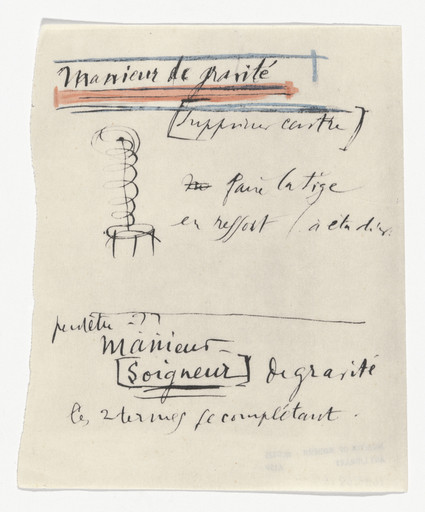 Manieur de gravité
[Supprimer centre]
faire la tige
en ressort (à étudier.
peutêtre :
Manieur
[Soigneur] de gravité
les 2 termes se complétant.